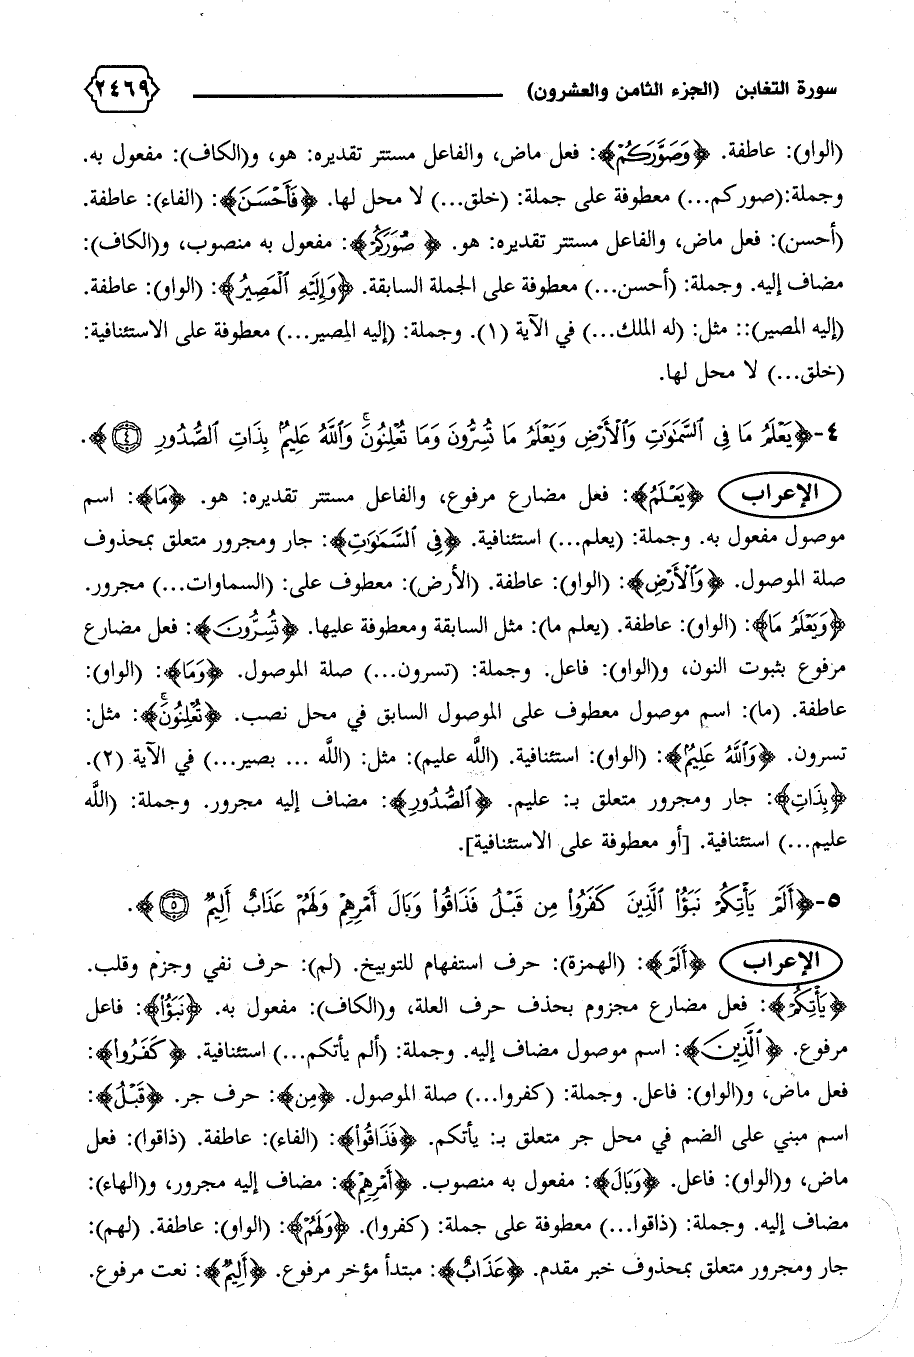 سورة التغابن (الجزء الثامن والعشرون) ٢٤٦٩
(الواو): عاطفة. ﴿وَصَوَّرَكُمْ﴾: فعل ماض، والفاعل مستتر تقديره: هو، و(الكاف): مفعول به.
وجملة:(صوركم...) معطوفة على جملة: (خلق...) لا محل لها. ﴿فَأَحْسَنَ﴾: (الفاء): عاطفة.
(أحسن): فعل ماض، والفاعل مستتر تقديره: هو. ﴿صُوَرَكُمْ﴾: مفعول به منصوب، و(الكاف):
مضاف إليه. وجملة: (أحسن...) معطوفة على الجملة السابقة. ﴿وَإِلَيْهِ الْمَصِيرُ﴾: (الواو): عاطفة.
(إليه المصير):: مثل: (له الملك...) في الآية (١). وجملة: (إليه المصير...) معطوفة على الاستئنافية:
(خلق...) لا محل لها.
٤-﴿يَعْلَمُ مَا فِي السَّمَٰوَٰتِ وَالْأَرْضِ وَيَعْلَمُ مَا تُسِرُّونَ وَمَا تُعْلِنُونَ ۚ وَاللَّهُ عَلِيمٌ بِذَاتِ الصُّدُورِ ٤﴾.
الإعراب ﴿يَعْلَمُ﴾: فعل مضارع مرفوع، والفاعل مستتر تقديره: هو. ﴿مَا﴾: اسم
موصول مفعول به. وجملة: (يعلم...) استئنافية. ﴿فِي السَّمَٰوَٰتِ﴾: جار ومجرور متعلق بمحذوف
صلة الموصول. ﴿وَالْأَرْضِ﴾: (الواو): عاطفة. (الأرض): معطوف على: (السماوات...) مجرور.
﴿وَيَعْلَمُ مَا﴾: (الواو): عاطفة. (يعلم ما): مثل السابقة ومعطوفة عليها. ﴿تُسِرُّونَ﴾: فعل مضارع
مرفوع بثبوت النون، و(الواو): فاعل. وجملة: (تسرون...) صلة الموصول. ﴿وَمَا﴾: (الواو):
عاطفة. (ما): اسم موصول معطوف على الموصول السابق في محل نصب. ﴿تُعْلِنُونَ ۚ﴾: مثل:
تسرون. ﴿وَاللَّهُ عَلِيمٌ﴾: (الواو): استئنافية. (اللَّه عليم): مثل: (اللَّه ... بصير...) في الآية (٢).
﴿بِذَاتِ﴾: جار ومجرور متعلق بـ: عليم. ﴿الصُّدُورِ﴾: مضاف إليه مجرور. وجملة: (اللَّه
عليم...) استئنافية. [أو معطوفة على الاستئنافية].
٥-﴿أَلَمْ يَأْتِكُمْ نَبَؤُا۟ الَّذِينَ كَفَرُوا۟ مِن قَبْلُ فَذَاقُوا۟ وَبَالَ أَمْرِهِمْ وَلَهُمْ عَذَابٌ أَلِيمٌ ٥﴾.
الإعراب ﴿أَلَمْ﴾: (الهمزة): حرف استفهام للتوبيخ. (لم): حرف نفي وجزم وقلب.
﴿يَأْتِكُمْ﴾: فعل مضارع مجزوم بحذف حرف العلة، و(الكاف): مفعول به. ﴿نَبَؤُا۟﴾: فاعل
مرفوع. ﴿الَّذِينَ﴾: اسم موصول مضاف إليه. وجملة: (ألم يأتكم...) استئنافية. ﴿كَفَرُوا۟﴾:
فعل ماض، و(الواو): فاعل. وجملة: (كفروا...) صلة الموصول. ﴿مِن﴾: حرف جر. ﴿قَبْلُ﴾:
اسم مبني على الضم في محل جر متعلق بـ: يأتكم. ﴿فَذَاقُوا۟﴾: (الفاء): عاطفة. (ذاقوا): فعل
ماض، و(الواو): فاعل. ﴿وَبَالَ﴾: مفعول به منصوب. ﴿أَمْرِهِمْ﴾: مضاف إليه مجرور، و(الهاء):
مضاف إليه. وجملة: (ذاقوا...) معطوفة على جملة: (كفروا). ﴿وَلَهُمْ﴾: (الواو): عاطفة. (لهم):
جار ومجرور متعلق بمحذوف خبر مقدم. ﴿عَذَابٌ﴾: مبتدأ مؤخر مرفوع. ﴿أَلِيمٌ﴾: نعت مرفوع.